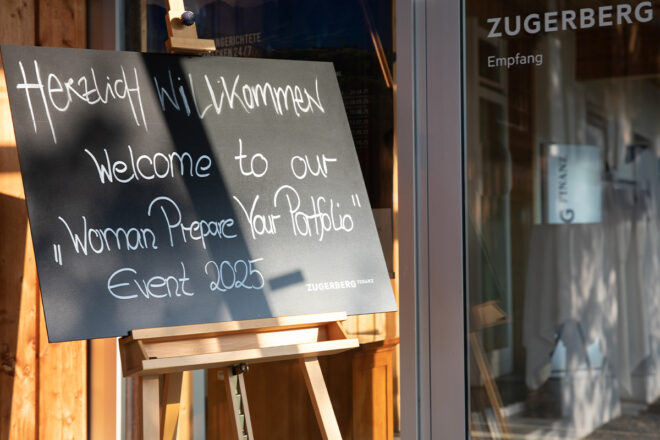 Herzlich Willkommen
Welcome to our
„Woman Prepare Your Portfolio"
Event 2025
ZUGERBERG FINANZ
ZUGERBERG
Empfang
FINANZ